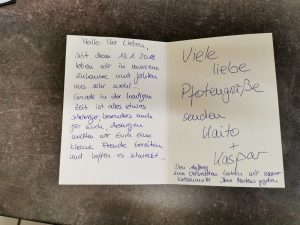 Hallo Ihr Lieben,
seit dem 13.1.20
leben wir in unserem
Zuhause und fühlen
uns sehr wohl.
Gerade in der heutigen
Zeit ist alles etwas
schwieriger, besonders auch
für Euch, deswegen
wollten wir Euch eine
kleine Freude bereiten
und hoffen es schmeckt.
Viele
liebe
Pfotengrüße
senden
Kaito
+
Kaspar
Den Anhang
zum haben wir unserer